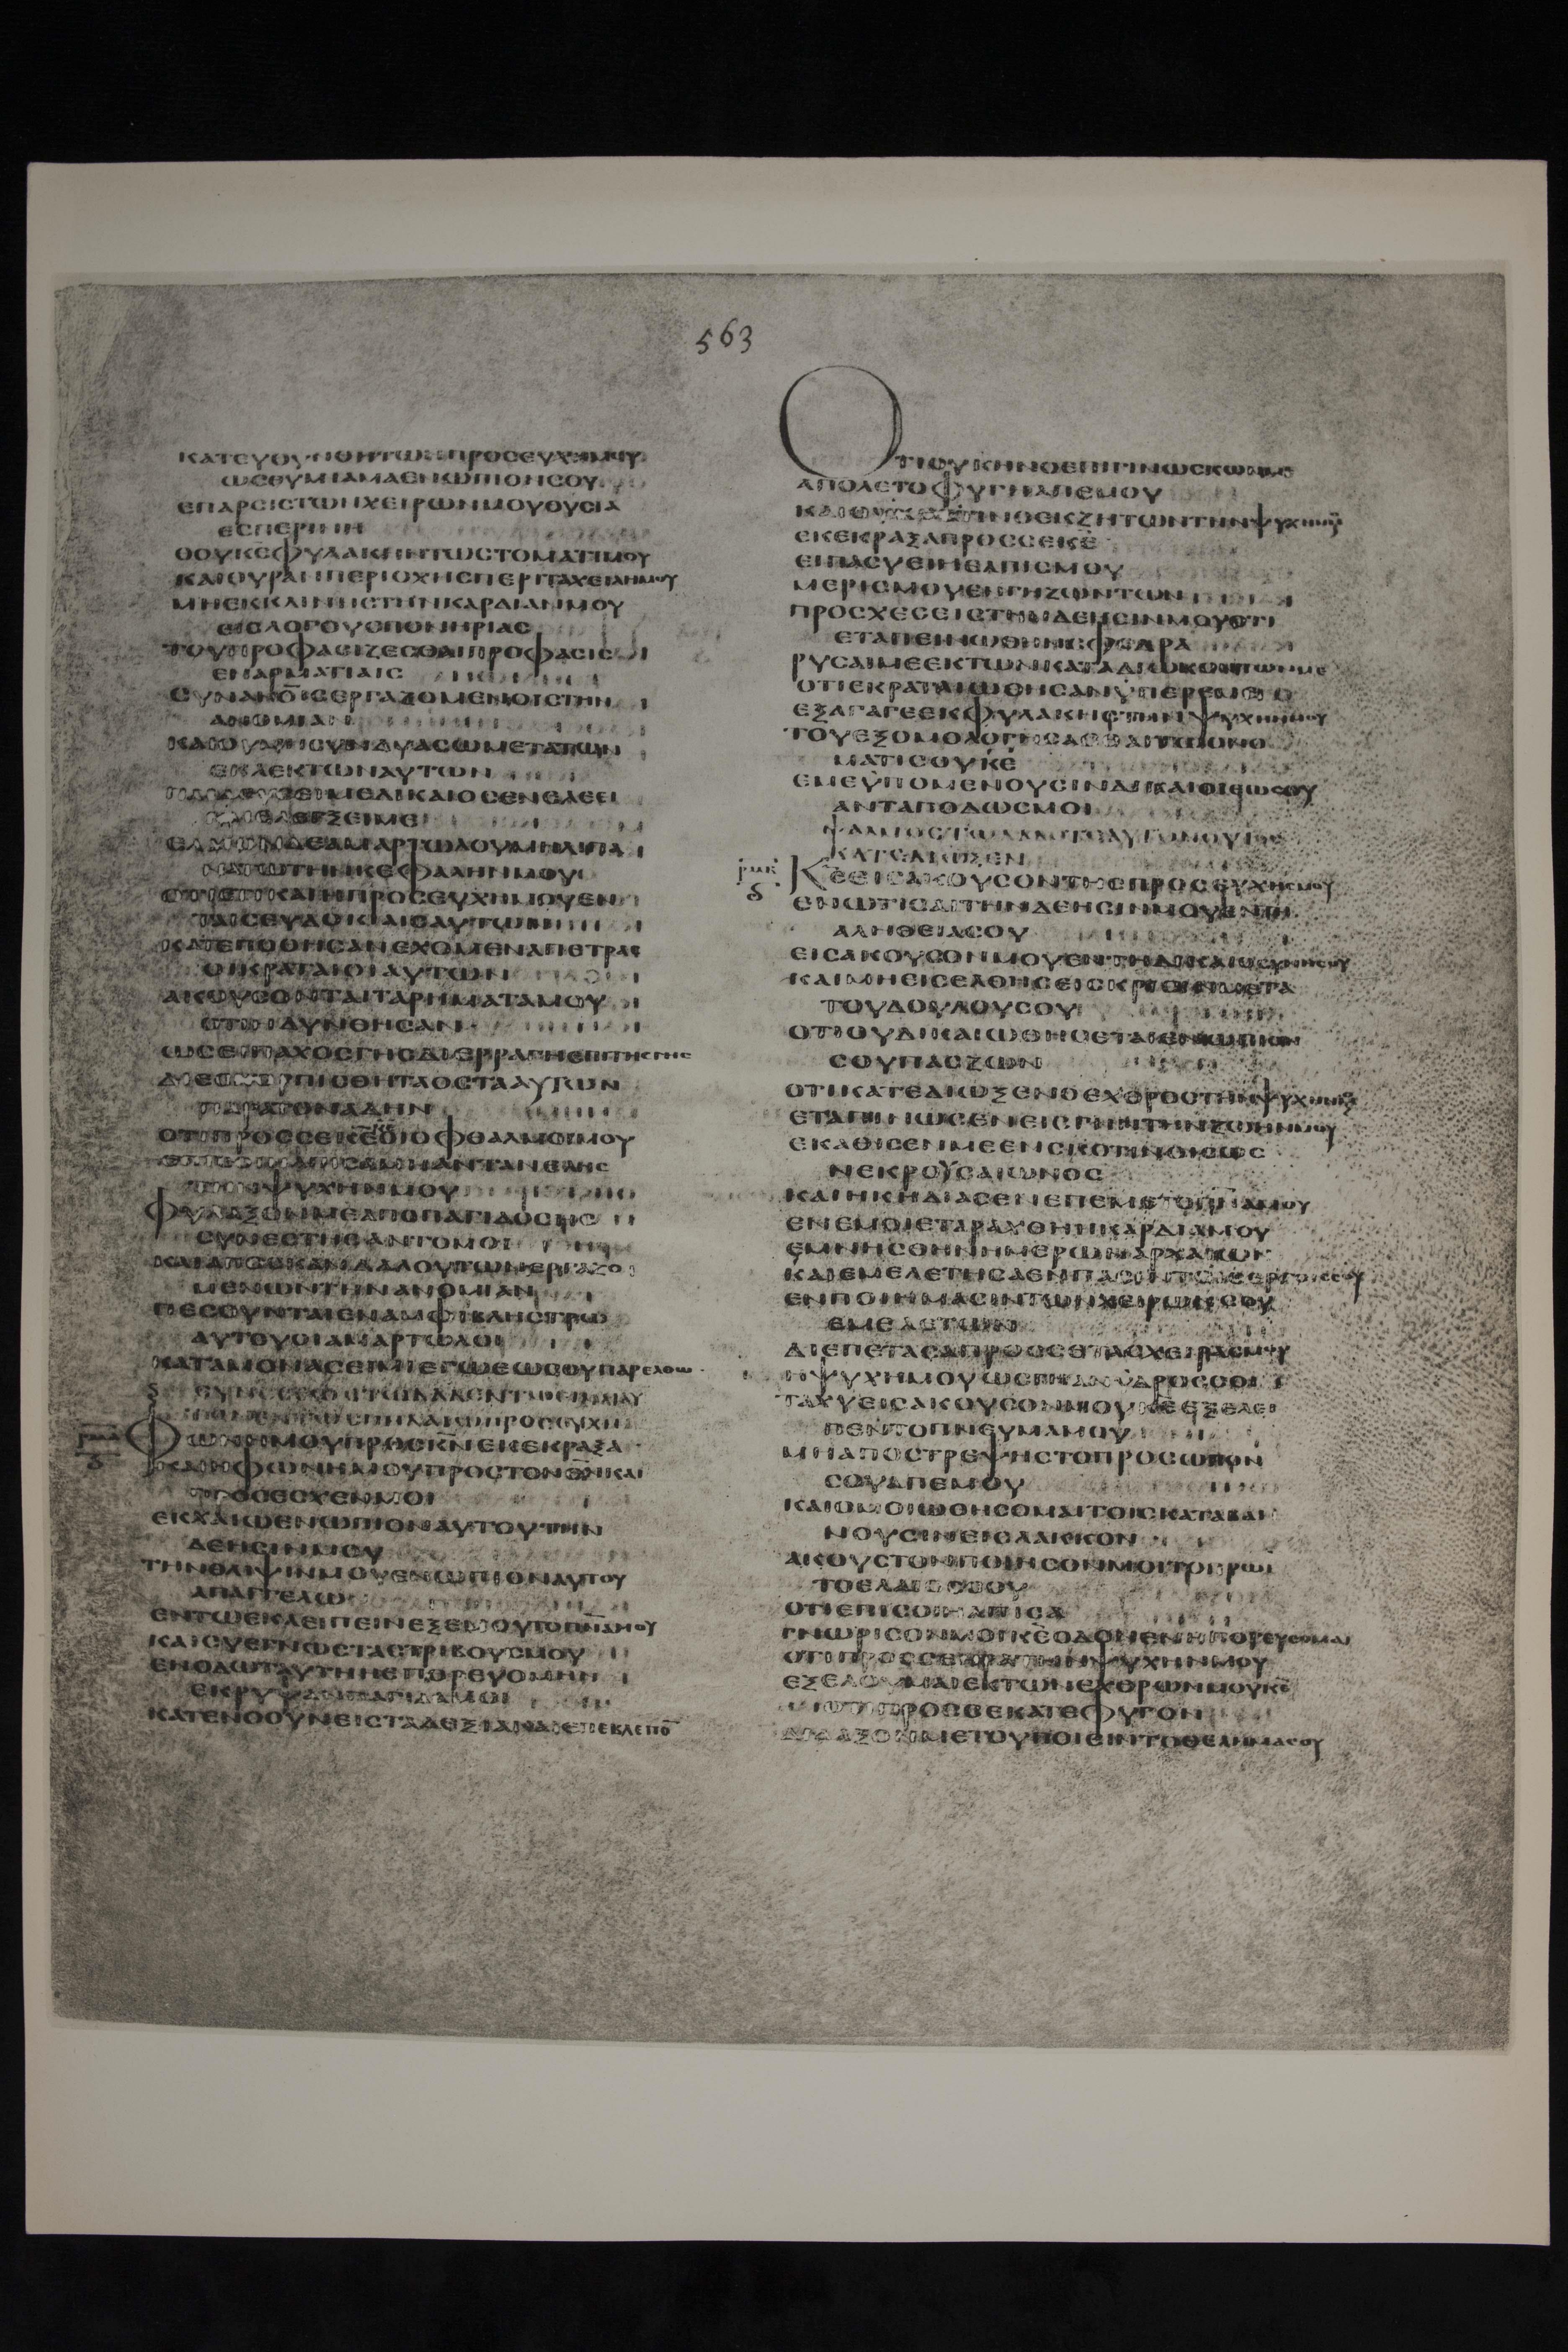 563
ΚΑΤΕΥΟΥΝΘΗΤΩΗΠΡΟСΕΥΧΗΜΟΥ
ΩСΘΥΜΙΑΜΑΕΝΩΠΙΟΝСΟΥ
ΕΠΑΡСΙСΤΩΝΧΕΙΡΩΝΜΟΥΘΥСΙΑ
ΕСΠΕΡΙΝΗ
ΘΟΥΚΕΦΥΛΑΚΗΝΤΩСΤΟΜΑΤΙΜΟΥ
ΚΑΙΘΥΡΑΝΠΕΡΙΟΧΗСΠΕΡΙΤΑΧΕΙΛΗΜΟΥ
ΜΗΕΚΚΛΙΝΗСΤΗΝΚΑΡΔΙΑΝΜΟΥ
ΕΙСΛΟΓΟΥСΠΟΝΗΡΙΑС
ΤΟΥΠΡΟΦΑСΙΖΕСΘΑΙΠΡΟΦΑСΙС
ΕΝΑΡΜΑΤΙΑΙС
СΥΝΑΝΟΙСΕΡΓΑΖΟΜΕΝΟΙСΤΗΝ
ΑΝΟΜΙΑΝ
ΚΑΙΟΥΜΗСΥΝΔΥΑСΩΜΕΤΑΤΩΝ
ΕΚΛΕΚΤΩΝΑΥΤΩΝ
ΜΕΔΙΚΑΙΟСΕΝΕΛΕΕΙ
ΚΑΙΕΛΕΓΞΕΙΜΕ
ΕΛΑΙΟΝΔΕΑΜΑΡΤΩΛΟΥΜΗΛΙΠΑ
ΝΑΤΩΤΗΝΚΕΦΑΛΗΝΜΟΥ
ΟΤΙΕΤΙΚΑΙΗΠΡΟСΕΥΧΗΜΟΥΕΝ
ΤΑΙСΕΥΔΟΚΙΑΙСΑΥΤΩΝ
ΚΑΤΕΠΟΘΗСΑΝΕΧΟΜΕΝΑΠΕΤΡΑС
ΟΙΚΡΑΤΑΙΟΙΑΥΤΩΝ
ΑΚΟΥСΟΝΤΑΙΤΑΡΗΜΑΤΑΜΟΥ
ΟΤΙΗΔΥΝΘΗСΑΝ
ΩСΕΙΠΑΧΟСΓΗСΔΙΕΡΡΑΓΗΕΠΙΤΗСΓΗС
ΔΙΕСΚΟΡΠΙСΘΗΤΑΟСΤΑΑΥΤΩΝ
ΠΑΡΑΤΟΝΑΔΗΝ
ΟΤΙΠΡΟССΕΚΕΚΕΟΙΟΦΘΑΛΜΟΙΜΟΥ
ΕΠΙСΟΙΗΛΠΙСΑΜΗΑΝΤΑΝΕΛΗС
ΤΗΝΨΥΧΗΝΜΟΥ
ΦΥΛΑΞΟΝΜΕΑΠΟΠΑΓΙΔΟСΗС
СΥΝΕСΤΗСΑΝΤΟΜΟΙ
ΚΑΙΑΠΟСΚΑΝΔΑΛΟΥΤΩΝΕΡΓΑΖΟ
ΜΕΝΩΝΤΗΝΑΝΟΜΙΑΝ
ΠΕСΟΥΝΤΑΙΕΝΑΜΦΙΒΛΗСΤΡΩ
ΑΥΤΟΥΟΙΑΜΑΡΤΩΛΟΙ
ΚΑΤΑΜΟΝΑСΕΙΜΙΕΓΩΕΩСΟΥΠΑΡΕΛΘΩ
СΠΗΛΑΙΩΠΡΟСΕΥΧΗ
ΦΩΝΗΜΟΥΠΡΟСΚΝΕΚΕΚΡΑΞΑ
ΚΑΙΗΦΩΝΗΜΟΥΠΡΟСΤΟΝΘΝΚΑΙ
ΠΡΟСΕСΧΕΝΜΟΙ
ΕΚΧΑΙΩΕΝΩΠΙΟΝΑΥΤΟΥΤΗΝ
ΔΕΗСΙΝΜΟΥ
ΤΗΝΘΛΙΨΙΝΜΟΥΕΝΩΠΙΟΝΑΥΤΟΥ
ΑΠΑΓΓΕΛΩ
ΕΝΤΩΕΚΛΕΙΠΕΙΝΕΞΕΜΟΥΤΟΠΝΑΜΟΥ
ΚΑΙСΥΕΓΝΩСΤΑСΤΡΙΒΟΥСΜΟΥ
ΕΝΟΔΩΤΑΥΤΗΗΕΠΟΡΕΥΟΜΗΝ
ΕΚΡΥΨΑΝΠΑΓΙΔΑΜΟΙ
ΚΑΤΕΝΟΟΥΝΕΙСΤΑΔΕΞΙΑΚΑΙΕΠΕΒΛΕΠΟ
ΟΤΙΟΥΚΗΝΟΕΠΙΓΙΝΩСΚΩΝΜΕ
ΑΠΟΛΕΤΟΦΥΓΗΑΠΕΜΟΥ
ΚΑΙΟΥΚΕСΤΙΝΟΕΚΖΗΤΩΝΤΗΝΨΥΧΗΝΜΟΥ
ΕΚΕΚΡΑΞΑΠΡΟССΕΚΕ
ΕΙΠΑСΥΕΙΗΕΛΠΙСΜΟΥ
ΜΕΡΙСΜΟΥΕΝΓΗΖΩΝΤΩΝ
ΠΡΟСΧΕСΕΙСΤΗΝΔΕΗСΙΝΜΟΥΟΤΙ
ΕΤΑΠΕΙΝΩΘΗΝСΦΟΔΡΑ
ΡΥСΑΙΜΕΕΚΤΩΝΚΑΤΑΔΙΩΚΟΝΤΩΝΜΕ
ΟΤΙΕΚΡΑΤΑΙΩΘΗСΑΝΥΠΕΡΕΜΕ
ΕΞΑΓΑΓΕΕΚΦΥΛΑΚΗСΤΗΝΨΥΧΗΝΜΟΥ
ΤΟΥΕΞΟΜΟΛΟΓΗСΑСΘΑΙΤΩΟΝΟ
ΜΑΤΙСΟΥΚΕ
ΕΜΕΥΠΟΜΕΝΟΥСΙΝΔΙΚΑΙΟΙΕΩСΟΥ
ΑΝΤΑΠΟΔΩСΜΟΙ
ΚΑΤΕΔΙΩΞΕΝ
ΚΕΕΙСΑΚΟΥСΟΝΤΗСΠΡΟСΕΥΧΗСΜΟΥ
ΕΝΩΤΙСΑΙΤΗΝΔΕΗСΙΝΜΟΥΕΝΤΗ
ΑΛΗΘΕΙΑСΟΥ
ΕΙСΑΚΟΥСΟΝΜΟΥΕΝΤΗΔΙΚΑΙΟСΥΝΗСΟΥ
ΚΑΙΜΗΕΙСΕΛΘΗСΕΙСΚΡΙСΙΝΜΕΤΑ
ΤΟΥΔΟΥΛΟΥСΟΥ
ΟΤΙΟΥΔΙΚΑΙΩΘΗСΕΤΑΙΕΝΩΠΙΟΝ
СΟΥΠΑСΖΩΝ
ΟΤΙΚΑΤΕΔΙΩΞΕΝΟΕΧΘΡΟСΤΗΝΨΥΧΗΝΜΟΥ
ΕΤΑΠΙΝΩСΕΝΕΙСΓΗΝΤΗΝΖΩΗΝΜΟΥ
ΕΚΑΘΙСΕΝΜΕΕΝСΚΟΤΙΝΟΙСΩС
ΝΕΚΡΟΥСΑΙΩΝΟС
ΚΑΙΗΚΗΔΙΑСΕΝΕΠΕΜΕΤΟΠΝΑΜΟΥ
ΕΝΕΜΟΙΕΤΑΡΑΧΘΗΗΚΑΡΔΙΑΜΟΥ
ΕΜΝΗСΘΗΝΗΜΕΡΩΝΑΡΧΑΙΩΝ
ΚΑΙΕΜΕΛΕΤΗСΑΕΝΠΑСΙΝΤΟΙСΕΡΓΟΙССΟΥ
ΕΝΠΟΙΗΜΑСΙΝΤΩΝΧΕΙΡΩΝСΟΥ
ΕΜΕΛΕΤΩΝ
ΔΙΕΠΕΤΑСΑΠΡΟССΕΤΑСΧΕΙΡΑСΜΟΥ
ΗΨΥΧΗΜΟΥΩСΓΗΑΝΥΔΡΟССΟΙ
ΤΑΧΥΕΙСΑΚΟΥСΟΝΜΟΥΚΕΕΞΕΛΕΙ
ΠΕΝΤΟΠΝΕΥΜΑΜΟΥ
ΜΗΑΠΟСΤΡΕΨΗСΤΟΠΡΟСΩΠΟΝ
СΟΥΑΠΕΜΟΥ
ΚΑΙΟΜΟΙΩΘΗСΟΜΑΙΤΟΙСΚΑΤΑΒΑΙ
ΝΟΥСΙΝΕΙСΛΑΚΚΟΝ
ΑΚΟΥСΤΟΝΠΟΙΗСΟΝΜΟΙΤΟΠΡΩΙ
ΤΟΕΛΑΙΟССΟΥ
ΟΤΙΕΠΙСΟΙΗΛΠΙСΑ
ΓΝΩΡΙСΟΝΜΟΙΚΕΟΔΟΝΕΝΗΠΟΡΕΥСΟΜΑΙ
ΟΤΙΠΡΟССΕΗΡΑΤΗΝΨΥΧΗΝΜΟΥ
ΕΞΕΛΟΥΜΕΕΚΤΩΝΕΧΘΡΩΝΜΟΥΚΕ
ΟΤΙΠΡΟССΕΚΑΤΕΦΥΓΟΝ
ΔΙΔΑΞΟΝΜΕΤΟΥΠΟΙΕΙΝΤΟΘΕΛΗΜΑСΟΥ